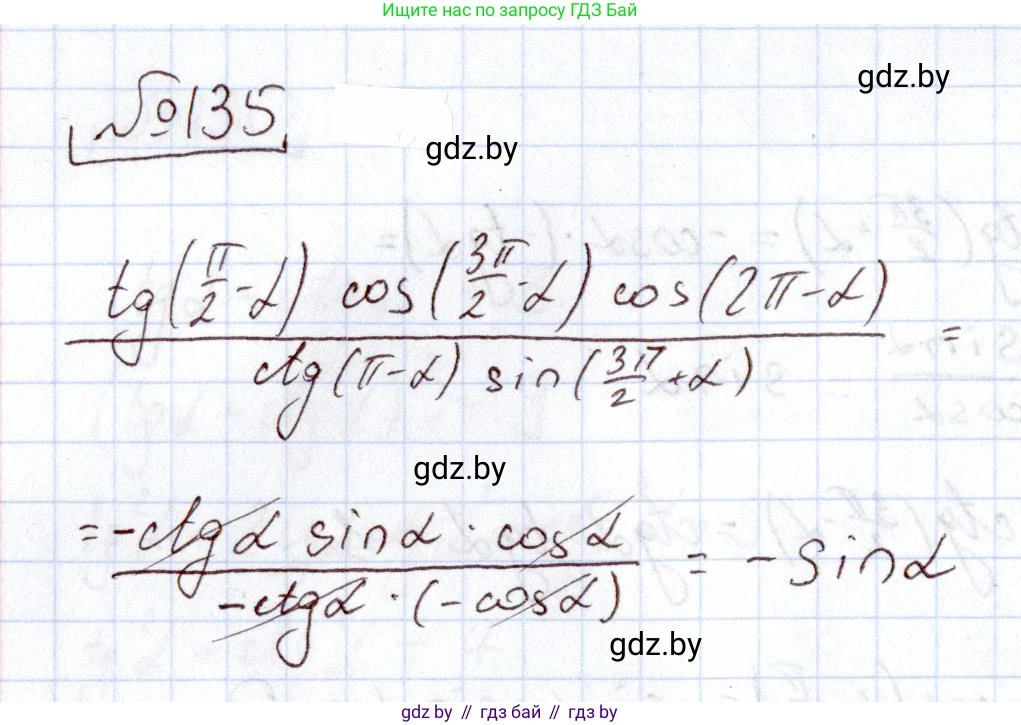 Ищите нас по запросу ГДЗ Бай
gdz.by
№135
gdz.by
tg(π/2 - α) cos(3π/2 - α) cos(2π - α)
=
ctg(π - α) sin(3π/2 + α)
gdz.by
= -ctgα sinα · cosα
= -sinα
-ctgα · (-cosα)
gdz.by
gdz.by // гдз бай // gdz.by